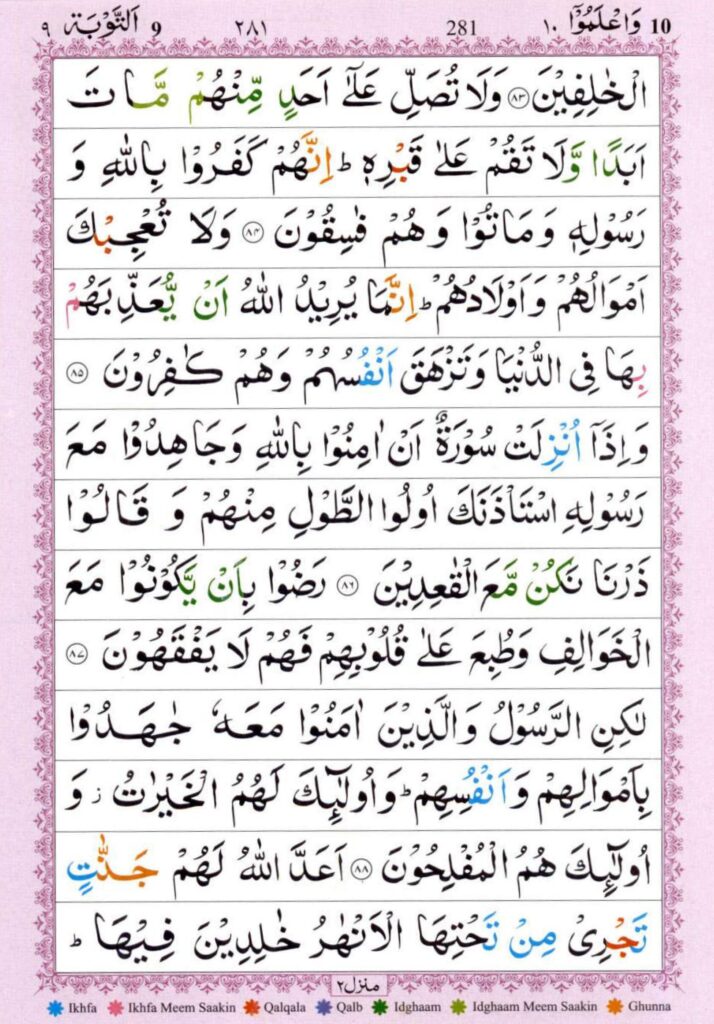 10 وَاعْلَمُوْٓا ١٠ 281 ٢٨١ 9 اَلتَّوْبَة ٩
الْخٰلِفِيْنَ ﴿٨٣﴾ وَلَا تُصَلِّ عَلٰٓى اَحَدٍ مِّنْهُمْ مَّاتَ
اَبَدًا وَّلَا تَقُمْ عَلٰى قَبْرِهٖ ؕ اِنَّهُمْ كَفَرُوْا بِاللّٰهِ وَ
رَسُوْلِهٖ وَمَاتُوْا وَهُمْ فٰسِقُوْنَ ﴿٨٤﴾ وَلَا تُعْجِبْكَ
اَمْوَالُهُمْ وَاَوْلَادُهُمْ ؕ اِنَّمَا يُرِيْدُ اللّٰهُ اَنْ يُّعَذِّبَهُمْ
بِهَا فِى الدُّنْيَا وَتَزْهَقَ اَنْفُسُهُمْ وَهُمْ كٰفِرُوْنَ ﴿٨٥﴾
وَاِذَآ اُنْزِلَتْ سُوْرَةٌ اَنْ اٰمِنُوْا بِاللّٰهِ وَجَاهِدُوْا مَعَ
رَسُوْلِهِ اسْتَاْذَنَكَ اُولُوا الطَّوْلِ مِنْهُمْ وَ قَالُوْا
ذَرْنَا نَكُنْ مَّعَ الْقٰعِدِيْنَ ﴿٨٦﴾ رَضُوْا بِاَنْ يَّكُوْنُوْا مَعَ
الْخَوَالِفِ وَطُبِعَ عَلٰى قُلُوْبِهِمْ فَهُمْ لَا يَفْقَهُوْنَ ﴿٨٧﴾
لٰكِنِ الرَّسُوْلُ وَالَّذِيْنَ اٰمَنُوْا مَعَهٗ جٰهَدُوْا
بِاَمْوَالِهِمْ وَاَنْفُسِهِمْ ؕ وَاُولٰٓئِكَ لَهُمُ الْخَيْرٰتُ ز وَ
اُولٰٓئِكَ هُمُ الْمُفْلِحُوْنَ ﴿٨٨﴾ اَعَدَّ اللّٰهُ لَهُمْ جَنّٰتٍ
تَجْرِىْ مِنْ تَحْتِهَا الْاَنْهٰرُ خٰلِدِيْنَ فِيْهَا ؕ
منزل ٢
Ikhfa Ikhfa Meem Saakin Qalqala Qalb Idghaam Idghaam Meem Saakin Ghunna